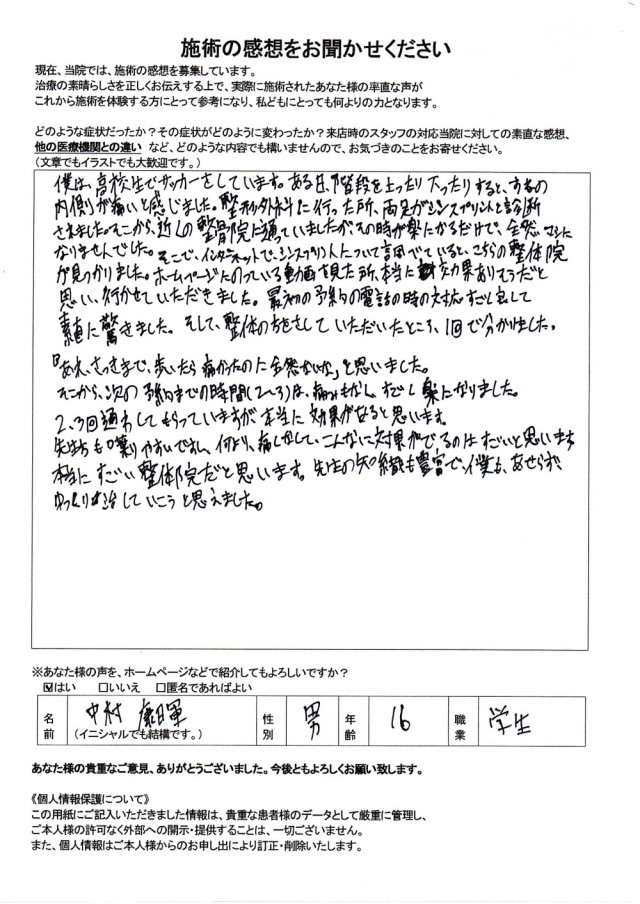 施術の感想をお聞かせください
現在、当院では、施術の感想を募集しています。
治療の素晴らしさを正しくお伝えする上で、実際に施術されたあなた様の率直な声が
これから施術を体験する方にとって参考になり、私どもにとっても何よりの力となります。
どのような症状だったか？その症状がどのように変わったか？来店時のスタッフの対応当院に対しての素直な感想、
他の医療機関との違い など、どのような内容でも構いませんので、お気づきのことをお寄せください。
（文章でもイラストでも大歓迎です。）
僕は、高校生でサッカーをしています。ある日、階段を上ったり下ったりすると、すねの
内側が痛いと感じました。整形外科に行った所、両足がシンスプリントと診断
されました。そこから、近くの整骨院に通っていましたが、その時が楽にかるだけで、全然、マシに
なりませんでした。そこで、インターネットで、シンスプリントについて調べていると、こちらの整体院
が見つかりました。ホームページにのっている動画を見た所、本当に効果ありそうだと
思い、行かせていただきました。最初の予約の電話の時の対応、すごくして
素直に驚きました。そして、整体のをさして いただいたところ、1回で分かりました。
「あれ、さっきまで、歩いたら痛かったのに全然ないな」と思いました。
そこから、次の予約までの時間(2~3)は、痛みもなし、すごし楽になりました。
2、3回通わしてもらっていますが本当に効果があると思います。
先生方も喋りやすいですし、何より、痛くなくして、こんなに対果がでるのはすごいと思います
本当にすごい整体院だと思います。先生の知識も豊富で、僕も、あせらず
ゆっくり治していこうと思えました。
※あなた様の声を、ホームページなどで紹介してもよろしいですか？
☑はい □いいえ □匿名であればよい
名前 中村 （イニシャルでも結構です。） 性別 男 年齢 16 職業 学生
あなた様の貴重なご意見、ありがとうございました。今後ともよろしくお願い致します。
《個人情報保護について》
この用紙にご記入いただきました情報は、貴重な患者様のデータとして厳重に管理し、
ご本人様の許可なく外部への開示・提供することは、一切ございません。
また、個人情報はご本人様からのお申し出により訂正・削除いたします。